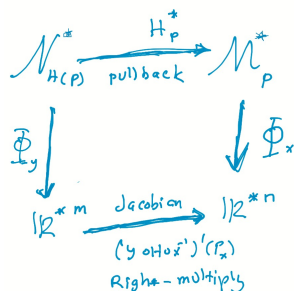 H*ₚ
𝒩*_H(P) pullback ℳ*ₚ
Φ_y Φ_x
ℝ*ᵐ Jacobian ℝ*ⁿ
(y∘H∘x⁻¹)'(Pₓ)
Right-multiply